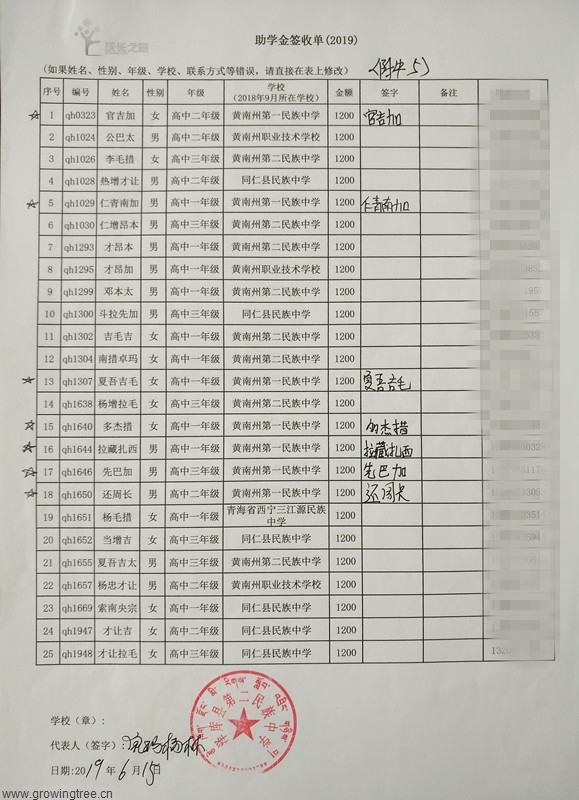 成长之路
助学金签收单(2019)
(如果姓名、性别、年级、学校、联系方式等错误，请直接在表上修改)
序号 编号 姓名 性别 年级 学校（2018年9月所在学校） 金额 签字 备注
1 qh0323 官吉加 女 高中二年级 黄南州第一民族中学 1200 官吉加
2 qh1024 公巴太 男 高中二年级 黄南州职业技术学校 1200
3 qh1026 李毛措 女 高中三年级 黄南州第二民族中学 1200
4 qh1028 热增才让 男 高中二年级 同仁县民族中学 1200
5 qh1029 仁青南加 男 高中一年级 黄南州第一民族中学 1200 仁青南加
6 qh1030 仁增昂本 男 高中三年级 黄南州第二民族中学 1200
7 qh1293 才昂本 男 高中一年级 黄南州第二民族中学 1200
8 qh1295 才昂加 男 高中一年级 黄南州职业技术学校 1200
9 qh1299 邓本太 男 高中一年级 黄南州第二民族中学 1200
10 qh1300 斗拉先加 男 高中三年级 同仁县民族中学 1200
11 qh1302 吉毛吉 女 高中一年级 黄南州第二民族中学 1200
12 qh1304 南措卓玛 女 高中一年级 黄南州第二民族中学 1200
13 qh1307 夏吾吉毛 女 高中一年级 黄南州第一民族中学 1200 夏吾吉毛
14 qh1638 杨增拉毛 女 高中三年级 黄南州第二民族中学 1200
15 qh1640 多杰措 女 高中一年级 黄南州第一民族中学 1200 多杰措
16 qh1644 拉藏扎西 男 高中一年级 黄南州第一民族中学 1200 拉藏扎西
17 qh1646 先巴加 男 高中三年级 黄南州第一民族中学 1200 先巴加
18 qh1650 还周长 男 高中二年级 黄南州第一民族中学 1200 还周长
19 qh1651 杨毛措 女 高中一年级 青海省西宁三江源民族中学 1200
20 qh1652 当增吉 女 高中三年级 同仁县民族中学 1200
21 qh1655 夏吾吉太 男 高中三年级 黄南州第二民族中学 1200
22 qh1657 杨忠才让 男 高中二年级 黄南州职业技术学校 1200
23 qh1669 索南央宗 女 高中一年级 同仁县民族中学 1200
24 qh1947 才让吉 女 高中二年级 同仁县民族中学 1200
25 qh1948 才让拉毛 女 高中三年级 同仁县民族中学 1200
学校（章）：
代表人（签字）：
日期:2019年6月15日
www.growingtree.cn